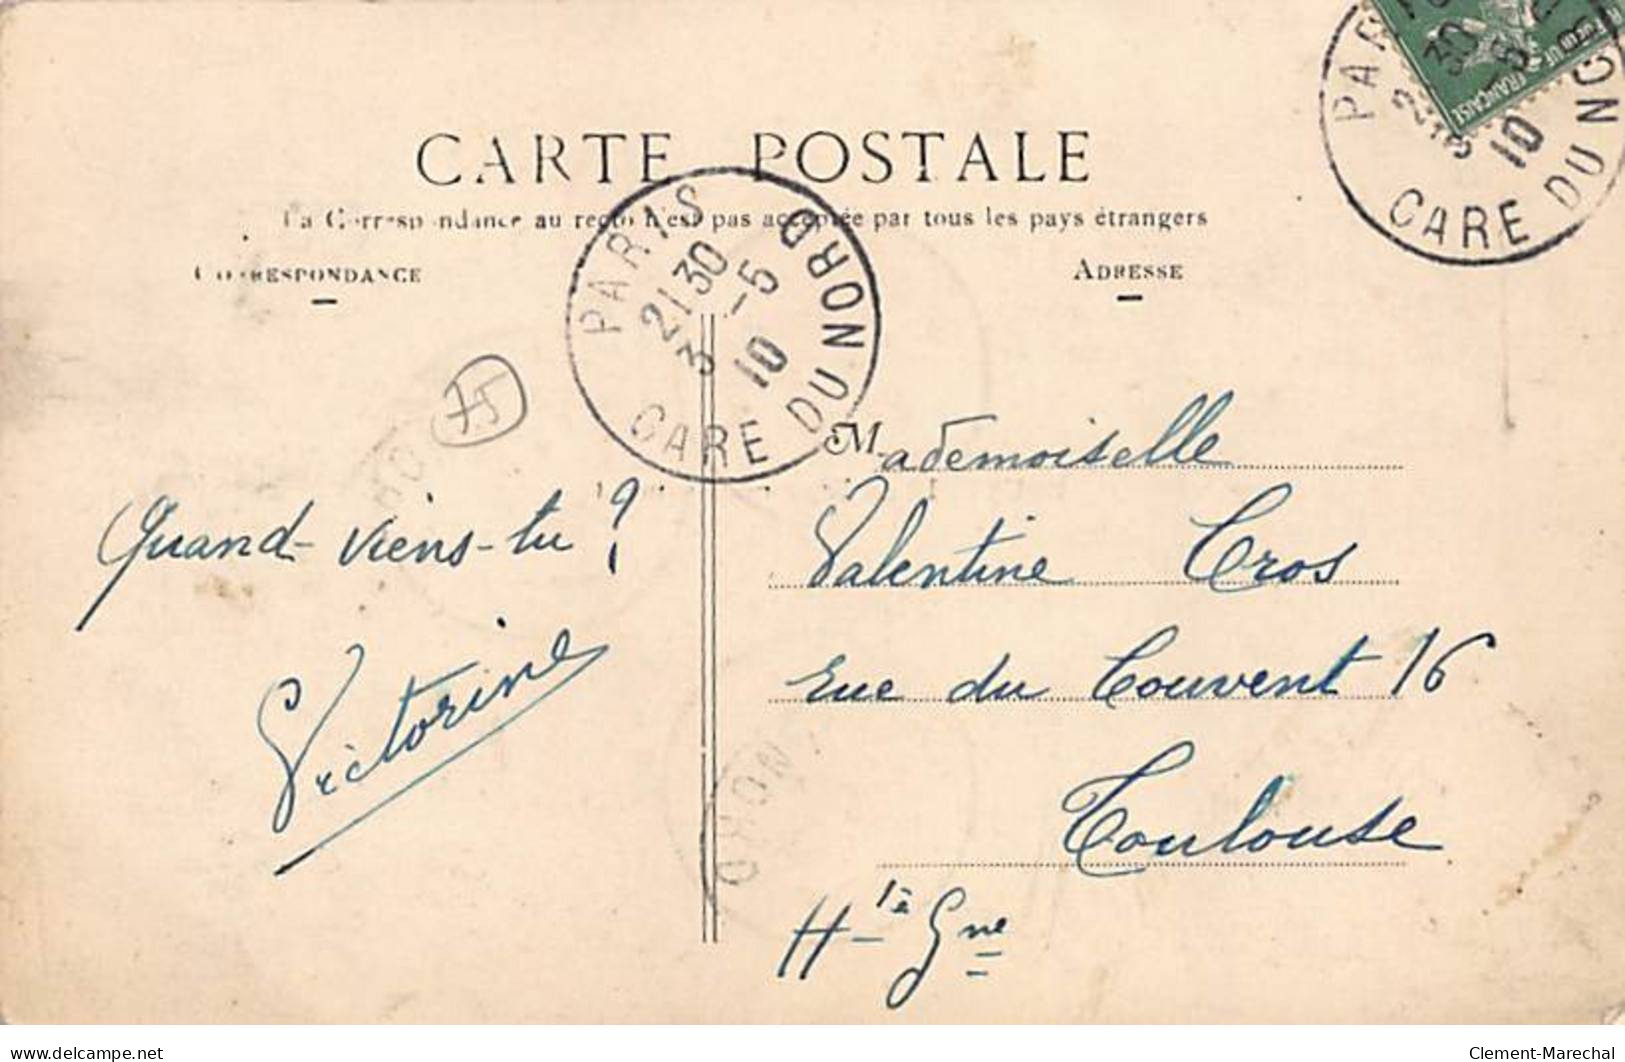 CARTE POSTALE
La Correspondance au recto n'est pas acceptée par tous les pays étrangers
CORRESPONDANCE
ADRESSE
PARIS GARE DU NORD
21 30
3 -5
10
PARIS GARE DU NORD
10
FRANÇAISE
75
Quand viens-tu ?
Victorine
Mademoiselle
Valentine Cros
rue du Couvent 16
Toulouse
Hte Gne
NORD
delcampe.net
Clement-Marechal